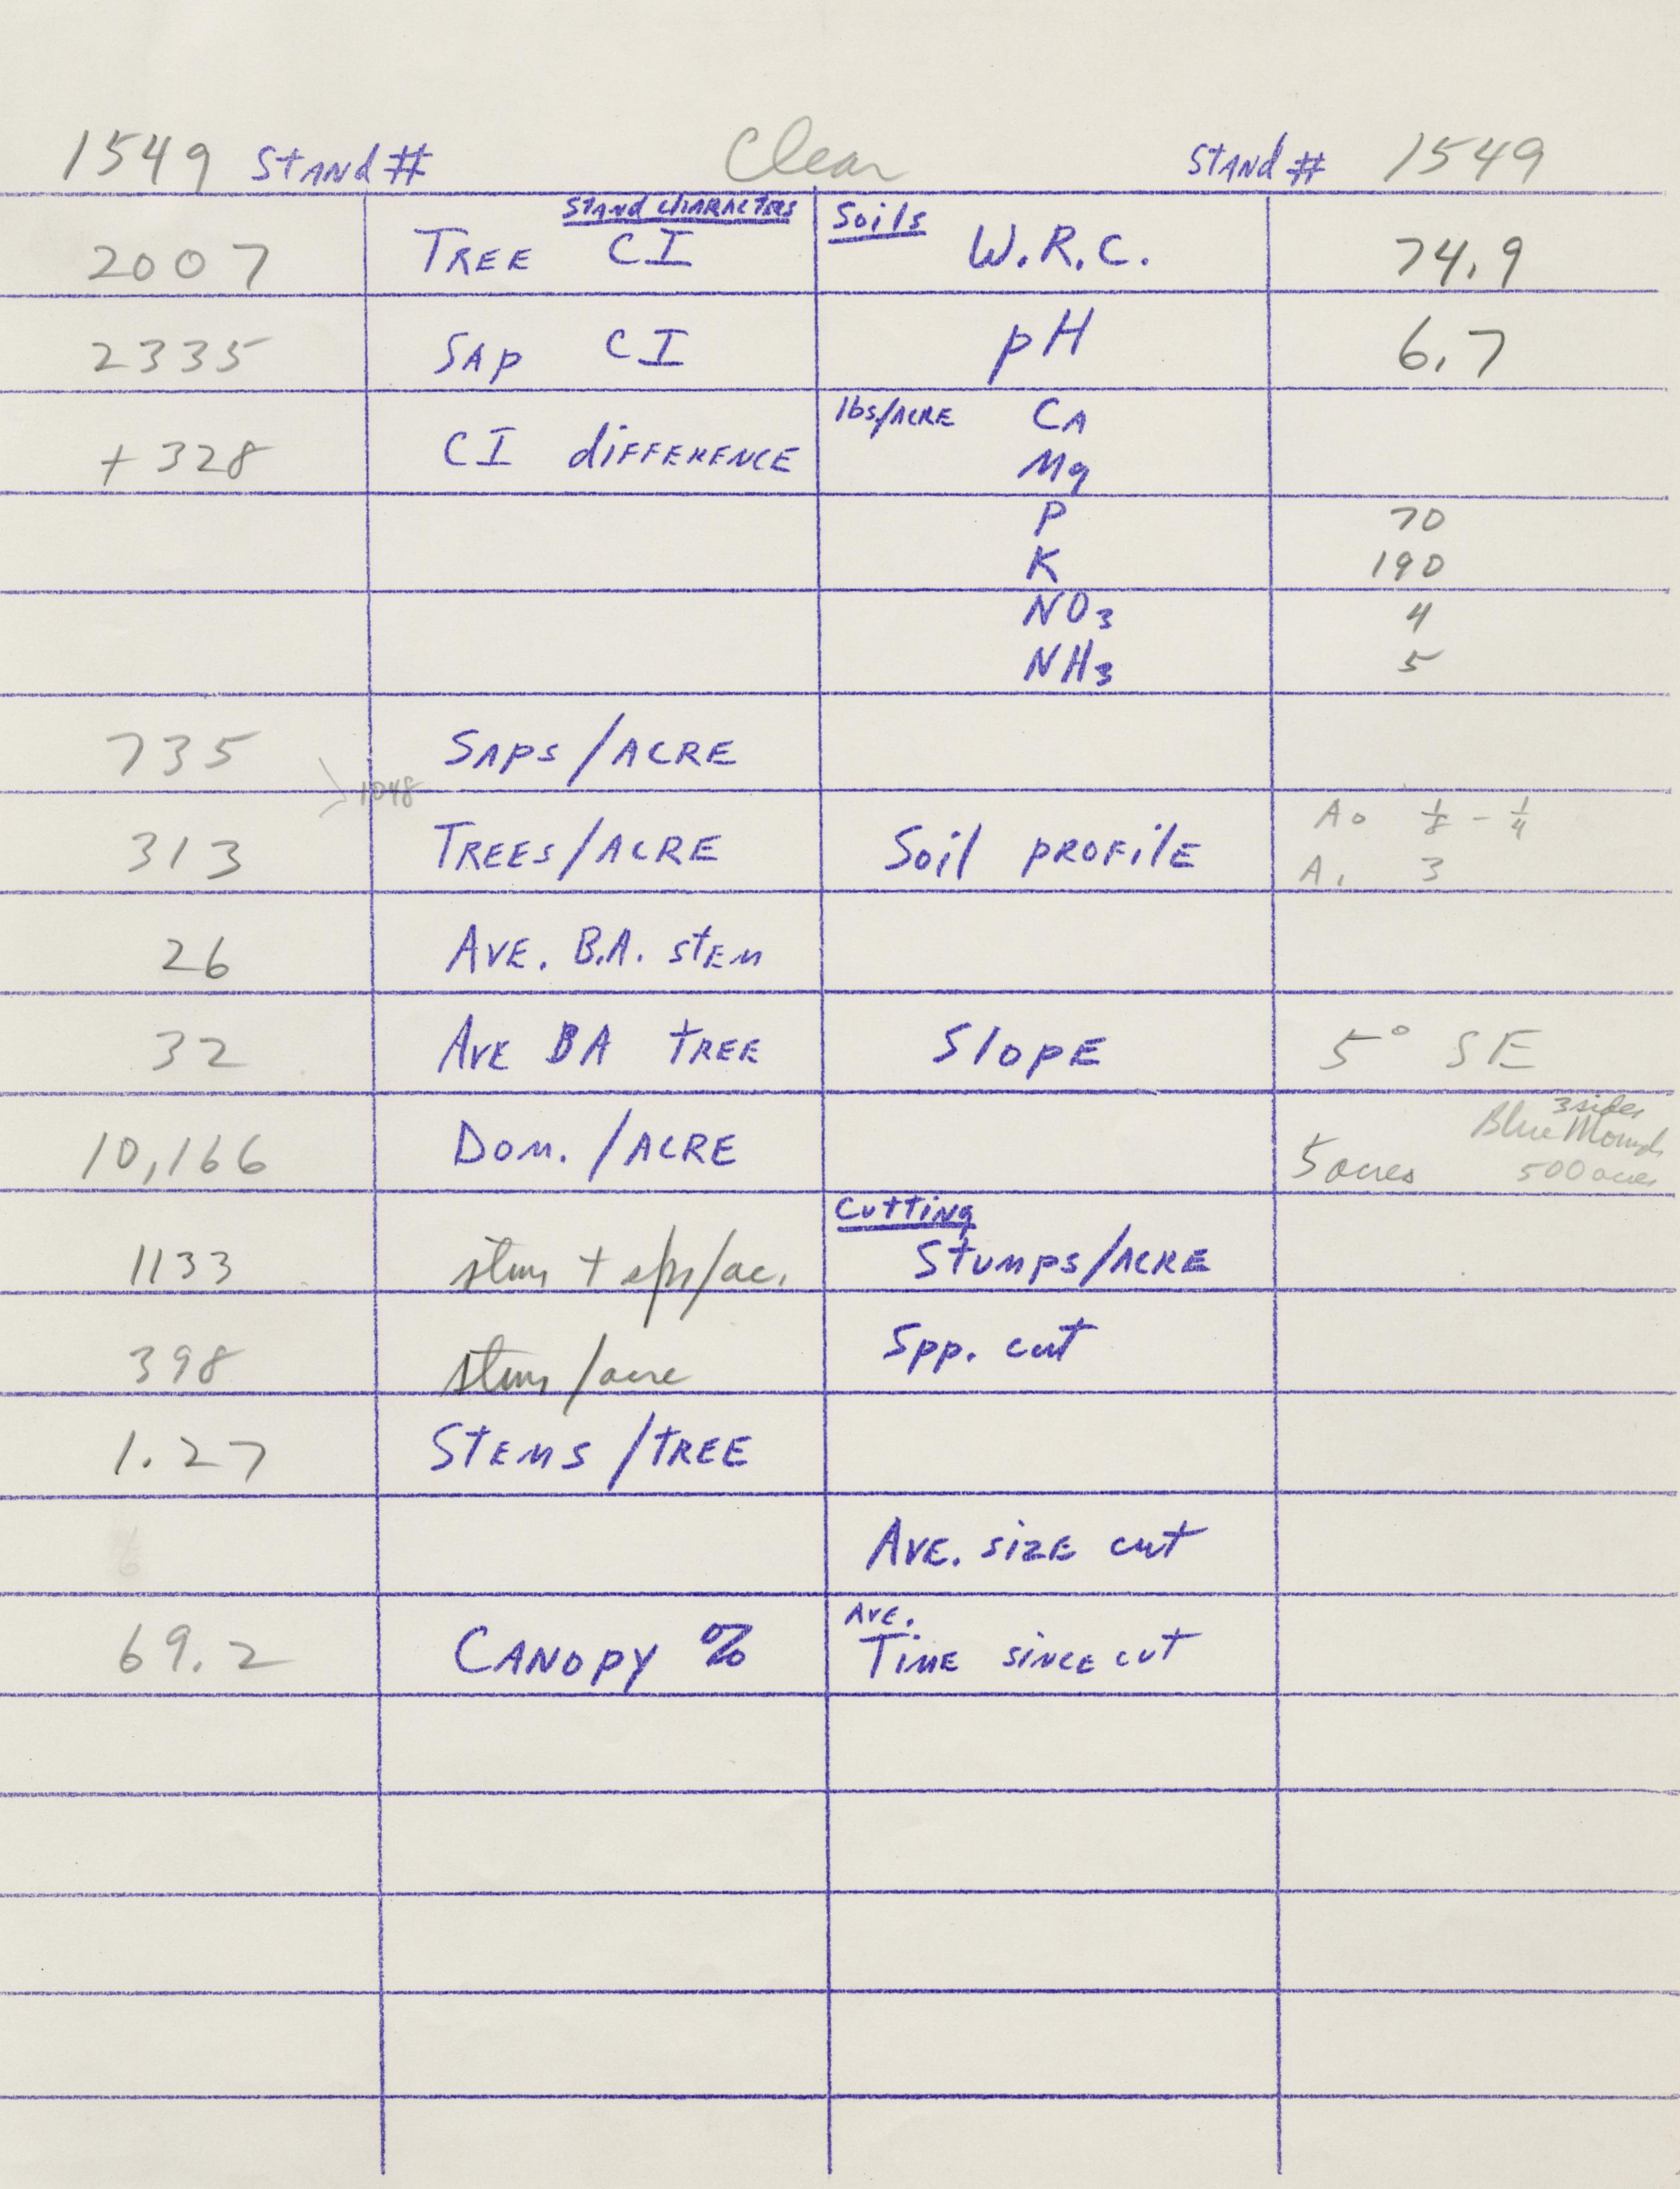 1549 Stand # Clear Stand # 1549
Stand Characters Soils
2007 Tree CI W.R.C. 74.9
2335 Sap CI pH 6.7
lbs/Acre Ca
+328 CI difference Mg
P 70
K 190
NO3 4
NH3 5
735 Saps/Acre
1048
A0 1/8 - 1/4
313 Trees/Acre Soil profile
A1 3
26 Ave. B.A. stem
32 Ave BA tree Slope 5° SE
3 sides
Blue Mounds
10,166 Dom./Acre 5 acres 500 acres
Cutting
1133 stems + sps/ac. Stumps/Acre
398 stems/acre Spp. cut
1.27 Stems/tree
Ave. size cut
Ave.
69.2 Canopy % Time since cut